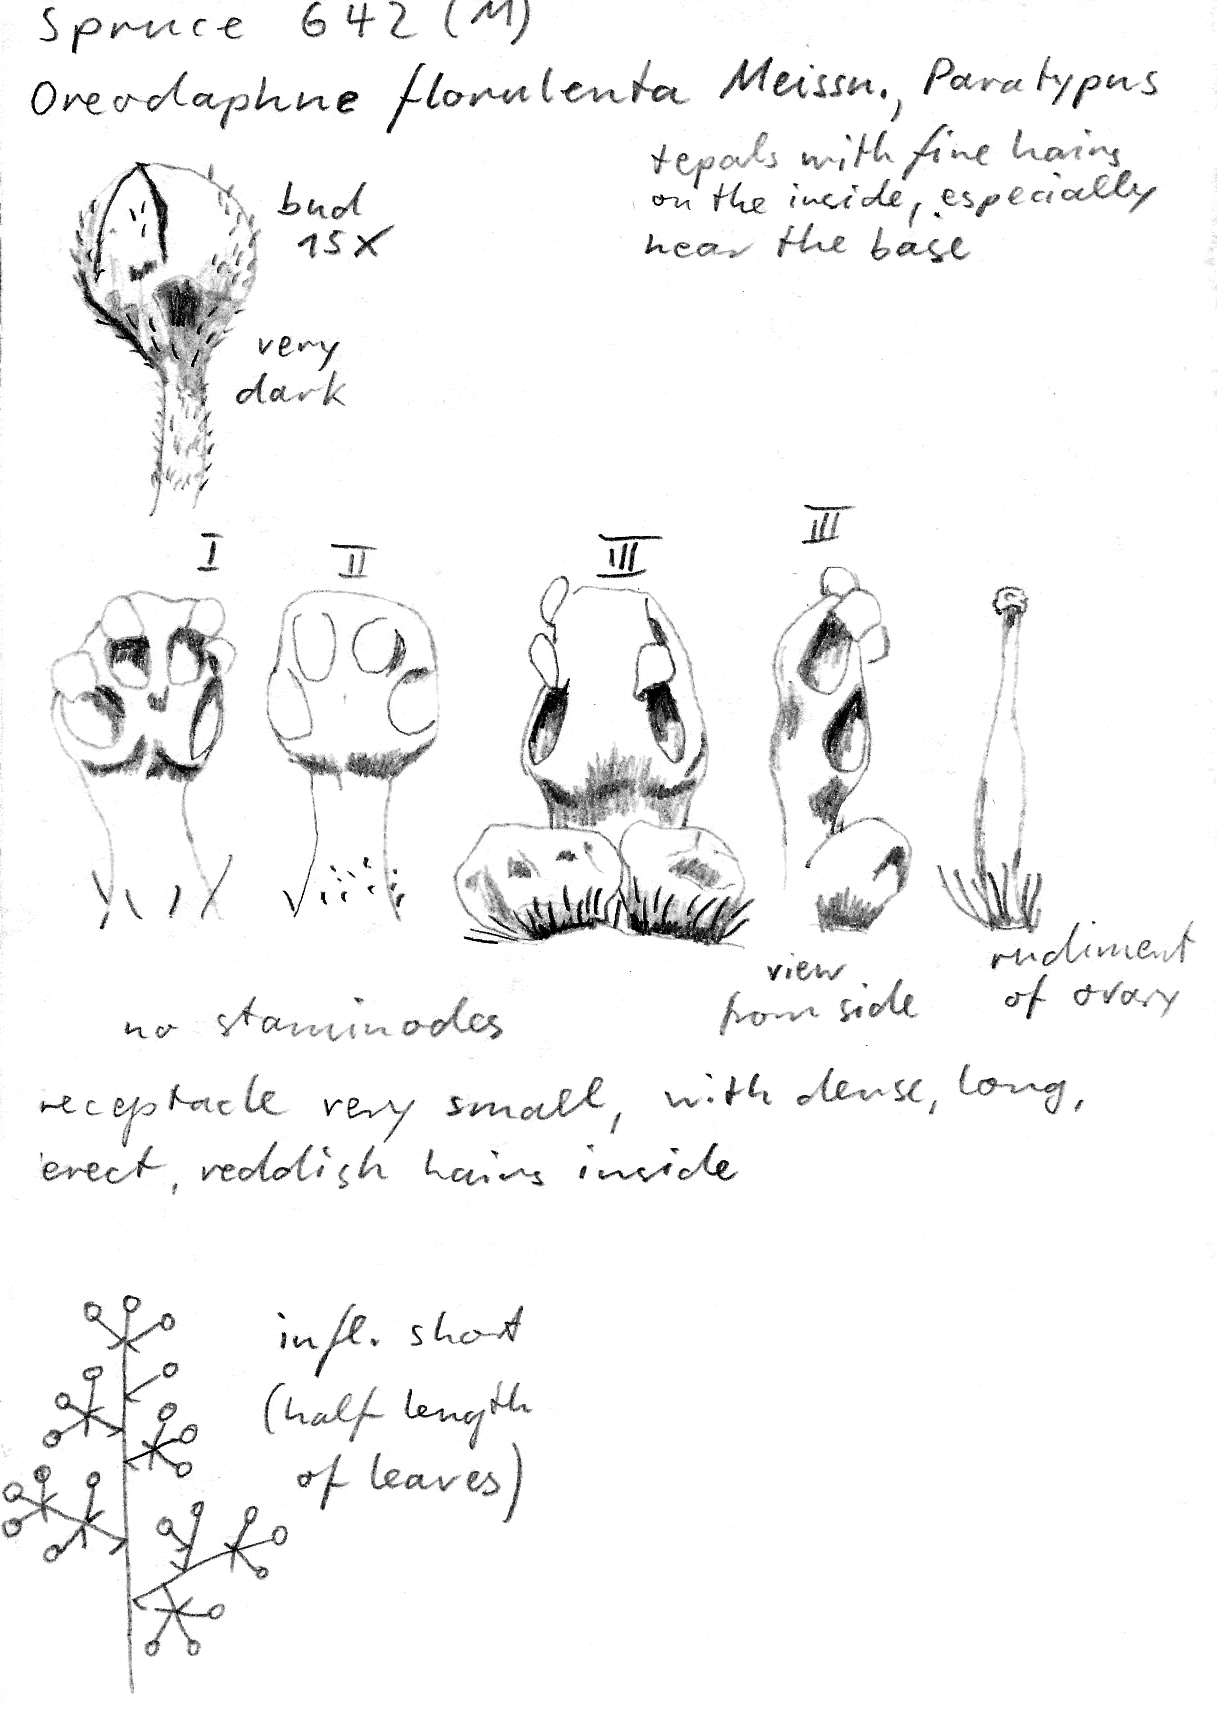 Spruce 642 (M)
Oreodaphne florulenta Meissn., Paratypus
tepals with fine hairs
on the inside, especially
near the base
bud
15X
very
dark
I
II
III
III
view
from side
rudiment
of ovary
no staminodes
receptacle very small, with dense, long,
erect, reddish hairs inside
infl. short
(half length
of leaves)